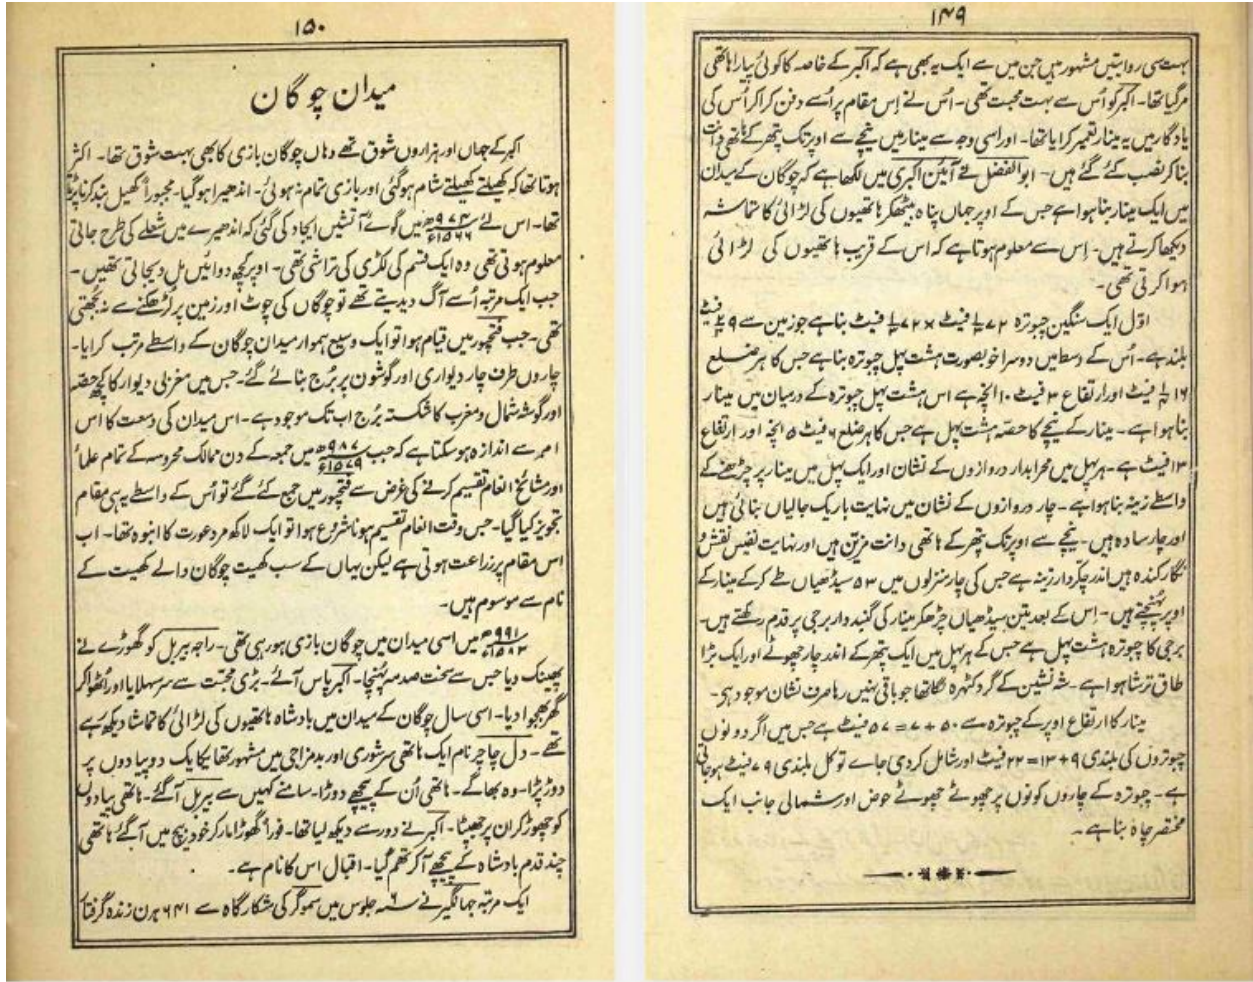 ۱۴۹
بہت سی روایتیں مشہور ہیں جن میں سے ایک یہ بھی ہے کہ اکبر کے خاصہ کا کوئی پیارا ہاتھی
مرگیا تھا۔ اکبر کو اُس سے بہت محبت تھی۔ اُس نے اِس مقام پر اُسے دفن کراکر اُس کی
یادگار میں یہ مینار تعمیر کرایا تھا۔ اور اسی وجہ سے مینار میں نیچے سے اوپر تک پتھر کے ہاتھی دانت
بناکر نصب کئے گئے ہیں۔ ابوالفضل نے آئین اکبری میں لکھا ہے کہ چوگان کے میدان
میں ایک مینار بنا ہوا ہے جس کے اوپر جہاں پناہ بیٹھکر ہاتھیوں کی لڑائی کا تماشہ
دیکھا کرتے ہیں۔ اِس سے معلوم ہوتا ہے کہ اس کے قریب ہاتھیوں کی لڑائی
ہوا کرتی تھی۔
اوّل ایک سنگین چبوترہ ۷۲ فیٹ × ۷۲ فیٹ بنا ہے جو زمین سے ۹ فیٹ
بلند ہے۔ اُس کے وسط میں دوسرا خوبصورت ہشت پہل چبوترہ بنا ہے جس کا ہر ضلع
۱۶ فیٹ اور ارتفاع ۳ فیٹ ۱۰ انچہ ہے اس ہشت پہل چبوترہ کے درمیان میں مینار
بنا ہوا ہے۔ مینار کے نیچے کا حصّہ ہشت پہل ہے جس کا ہر ضلع ۶ فیٹ ۵ انچہ اور ارتفاع
۱۳ فیٹ ہے۔ ہر پہل میں محرابدار دروازوں کے نشان اور ایک پہل میں مینار پر چڑھنے کے
واسطے زینہ بنا ہوا ہے۔ چار دروازوں کے نشان میں نہایت باریک جالیاں بنائی ہیں
اور چار سادہ ہیں۔ نیچے سے اوپر تک پتھر کے ہاتھی دانت مزیّن ہیں اور نہایت نفیس نقش و
نگار کندہ ہیں اندر چکّردار زینہ ہے جس کی چار منزلوں میں ۵۳ سیڑھیاں طے کرکے مینار کے
اوپر پہنچتے ہیں۔ اِس کے بعد تین سیڈھیاں چڑھکر مینار کی گنبد دار برجی پر قدم رکھتے ہیں۔
برجی کا چبوترہ ہشت پہل ہے جس کے ہر پہل میں ایک پتھر کے اندر چار چھوٹے اور ایک بڑا
طاق ترشا ہوا ہے۔ شہ نشین کے گرد کٹہرہ لگا تھا جو باقی نہیں رہا صرف نشان موجود ہی۔
مینار کا ارتفاع اوپر کے چبوترہ سے ۵۰ + ۷ = ۵۷ فیٹ ہے جس میں اگر دونوں
چبوتروں کی بلندی ۹ + ۱۳ = ۲۲ فیٹ اور شامل کردی جاے تو کل بلندی ۷۹ فیٹ ہوجاتی
ہے۔ چبوترہ کے چاروں کونوں پر چھوٹے چھوٹے حوض اور شمالی جانب ایک
مختصر چاہ بنا ہے۔
۱۵۰
میدان چوگان
اکبر کے جہاں اور ہزاروں شوق تھے وہاں چوگان بازی کا بھی بہت شوق تھا۔ اکثر
ہوتا تھا کہ کھیلتے کھیلتے شام ہوگئی اور بازی تمام نہ ہوئی۔ اندھیرا ہوگیا۔ مجبوراً کھیل بند کرنا پڑتا
تھا۔ اس لئے ۹۷۴ھ ۱۵۶۶ء میں گوے آتشیں ایجاد کی گئی کہ اندھیرے میں شعلے کی طرح جاتی
معلوم ہوتی تھی وہ ایک قسم کی لکڑی کی تراشی تھی۔ اوپر کچھ دوائیں مل دیجاتی تھیں۔
جب ایک مرتبہ اُسے آگ دیدیتے تھے تو چوگان کی چوٹ اور زمین پر لڑھکنے سے نہ بجھتی
تھی۔ جب فتحپور میں قیام ہوا تو ایک وسیع ہموار میدان چوگان کے واسطے مرتب کرایا۔
چاروں طرف چار دیواری اور گوشوں پر بُرج بنائے گئے۔ جس میں مغربی دیوار کا کچھ حصّہ
اور گوشہ شمال و مغرب کا شکستہ بُرج اب تک موجود ہے۔ اس میدان کی وسعت کا اس
امر سے اندازہ ہوسکتا ہے کہ جب ۹۸۷ھ ۱۵۷۹ء میں جمعہ کے دن ممالک محروسہ کے تمام علماء
اور مشائخ انعام تقسیم کرنے کی غرض سے فتحپور میں جمع کئے گئے تو اُس کے واسطے یہی مقام
تجویز کیا گیا۔ جس وقت انعام تقسیم ہونا شروع ہوا تو ایک لاکھ مرد عورت کا انبوہ تھا۔ اب
اس مقام پر زراعت ہوتی ہے لیکن یہاں کے سب کھیت چوگان والے کھیت کے
نام سے موسوم ہیں۔
۹۹۱ھ ۱۵۸۳ء میں اسی میدان میں چوگان بازی ہورہی تھی۔ راجہ بیربل کو گھوڑے نے
پھینک دیا جس سے سخت صدمہ پہنچا۔ اکبر پاس آئے۔ بڑی محبّت سے سر سہلایا اور اُٹھواکر
گھر بھجوا دیا۔ اسی سال چوگان کے میدان میں بادشاہ ہاتھیوں کی لڑائی کا تماشا دیکھ رہے
تھے۔ دل چاچر نام ایک ہاتھی سرشوری اور بدمزاجی میں مشہور تھا یکایک دو پیادوں پر
دوڑ پڑا۔ وہ بھاگے۔ ہاتھی اُن کے پیچھے دوڑا۔ سامنے کہیں سے بیربل آگئے۔ ہاتھی پیادوں
کو چھوڑکر ان پر جھپٹا۔ اکبر نے دور سے دیکھ لیا تھا۔ فوراً گھوڑا مارکر خود بیچ میں آگئے ہاتھی
چند قدم بادشاہ کے پیچھے آکر تھم گیا۔ اقبال اس کا نام ہے۔
ایک مرتبہ جہانگیر نے سنہ ۶ جلوس میں سموگر کی شکارگاہ سے ۶۴۱ ہرن زندہ گرفتار